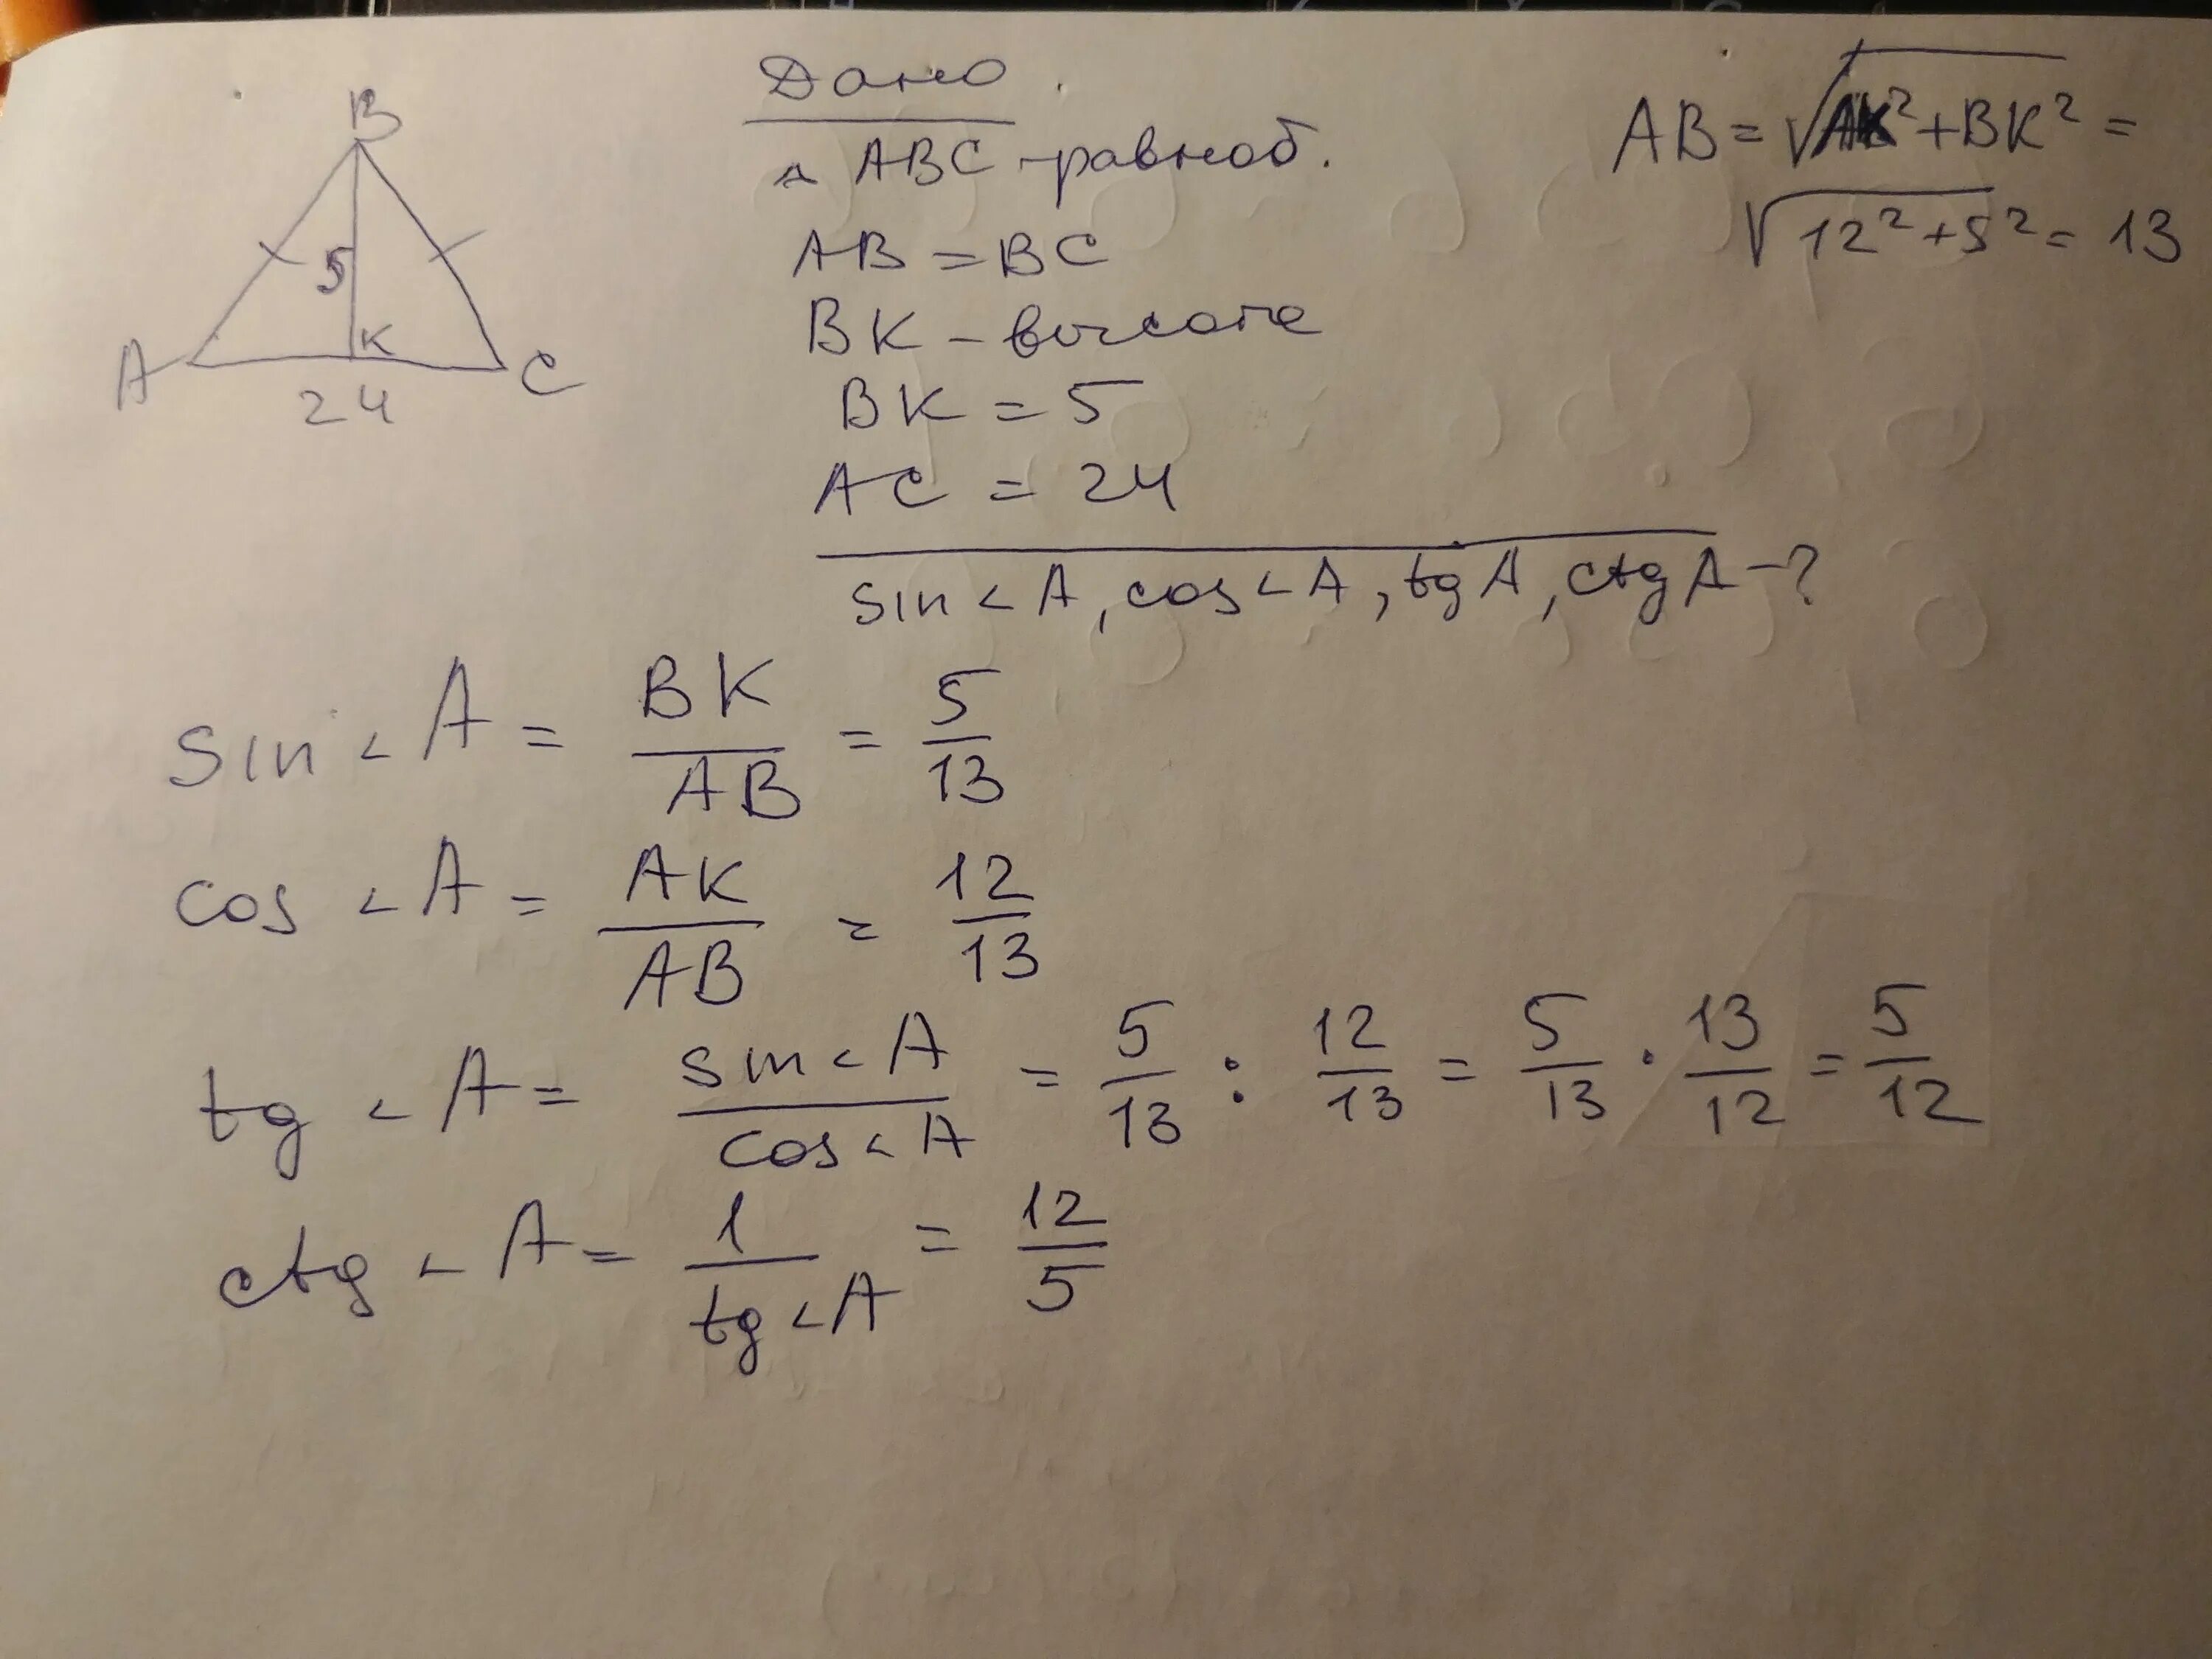 B
5
K
A
C
24
Дано.
△ ABC - равноб.
AB = BC
BK - высота
BK = 5
AC = 24
sin<A, cos<A, tg A, ctg A - ?
AB = √AK² + BK² =
√12² + 5² = 13
sin <A = BK/AB = 5/13
cos <A = AK/AB = 12/13
tg <A = sin<A/cos<A = 5/13 : 12/13 = 5/13 · 13/12 = 5/12
ctg <A = 1/tg<A = 12/5